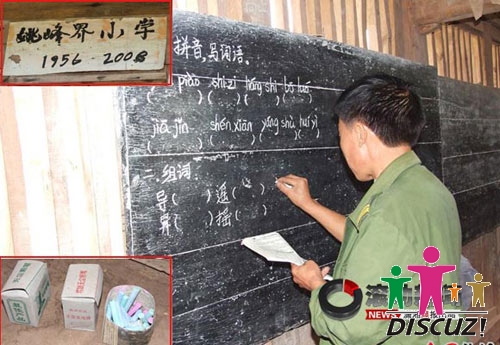 姚峰界小学
1956 2008
拼音,写词语。
piào shīzi háng shi bō luó
( ) ( ) ( ) ( )
jiā jīn shén xiān yáng shù huí yì
( ) ( ) ( ) ( )
二、组词
导( ) 遥( )
异( ) 摇( )
NEWS
DISCUZ!